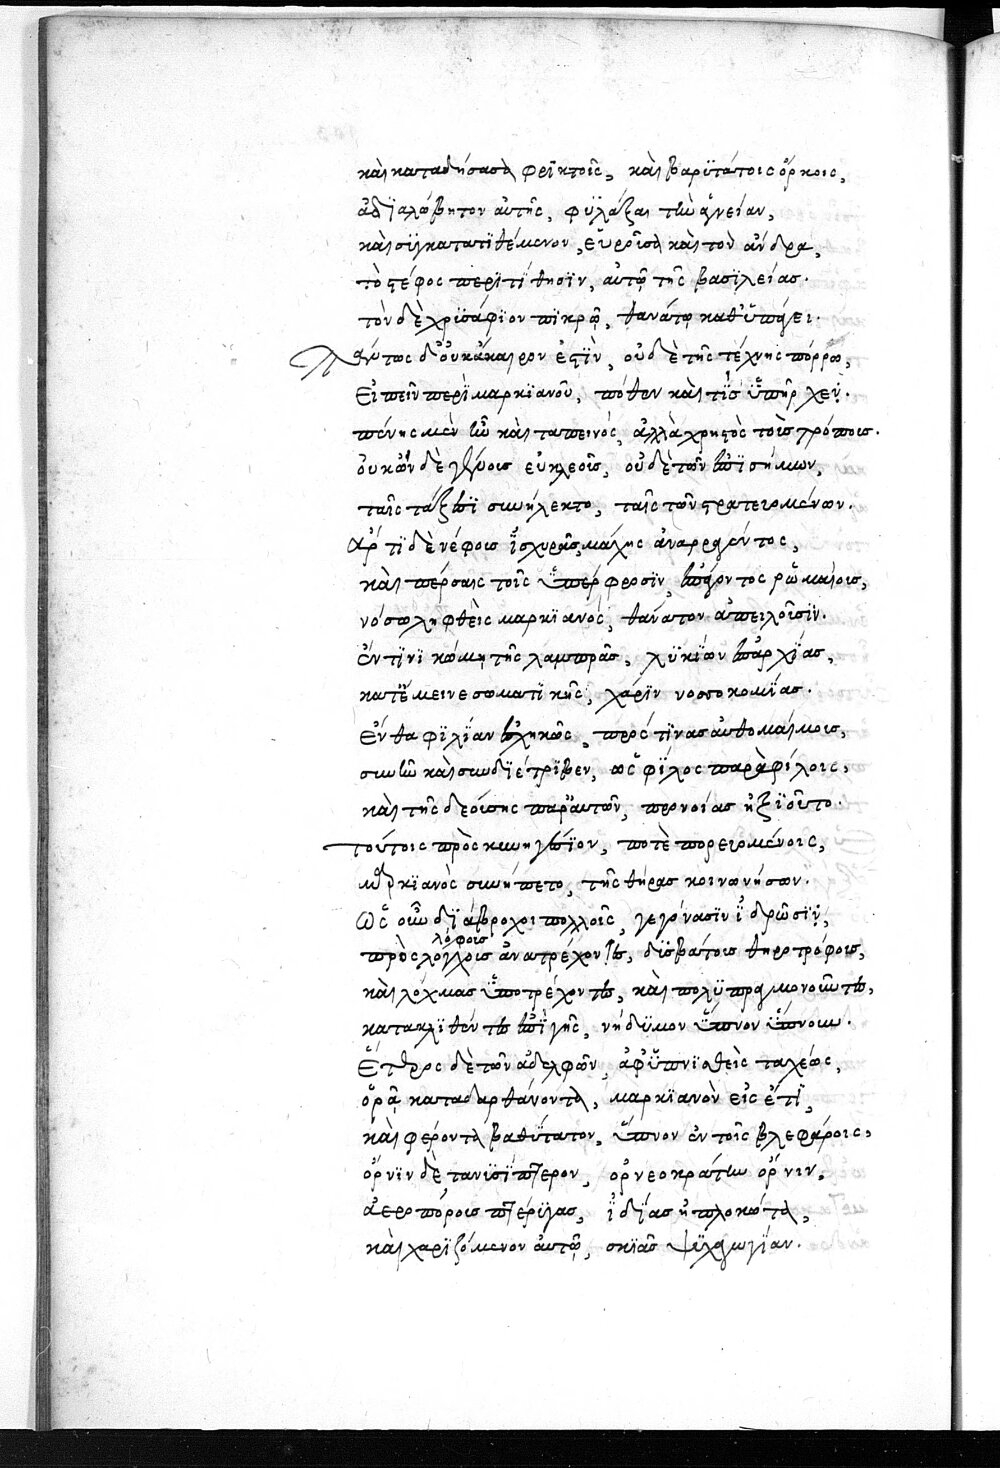 καὶ καταδήσασα φρικτοῖς, καὶ βαρυτάτοις ὅρκοις,
ἀδιαλώβητον αὐτῆς, φυλάξαι τὴν ἁγνείαν,
καὶ συγκατατιθέμενον, εὑροῦσα καὶ τὸν ἄνδρα,
τὸ στέφος περιτίθησιν, αὐτῷ τῆς βασιλείας.
τὸν δὲ χρυσάφιον πικρῷ, θανάτῳ καθυπάγει.
Πάντως δ' οὐκ ἄκαιρον ἐστὶν, οὐδὲ τῆς τέχνης πόρρω,
εἰπεῖν περὶ μαρκιανοῦ, πόθεν καὶ τίς ὑπῆρχεν.
πένης μὲν ἦν καὶ ταπεινὸς, ἀλλὰ χρηστὸς τοῖς τρόποις.
οὐκ ὢν δὲ γένους εὐκλεοῦς, οὐδὲ τῶν ἐπισήμων,
ταῖς τάξεσι συνήλεκτο, ταῖς τῶν στρατευομένων.
Ἄρτι δὲ νέφους ἰσχυρᾶς, μάχης ἀναρραγέντος,
καὶ πέρσαις τοῖς ὑπερφεροῦσιν, ἐπάγοντος ῥωμαίοις,
νόσῳ ληφθεὶς μαρκιανὸς, θάνατον ἀπειλούσῃ.
ἔν τινι κώμῃ τῆς λαμπρᾶς, λυκίων ἐπαρχίας,
κατέμεινε σωματικῆς, χάριν νοσοκομίας.
ἔνθα φιλίαν ἐσχηκὼς, πρός τινας αὐθομαίμους,
συνῆν καὶ συνδιέτριβεν, ὡς φίλος παρὰ φίλοις,
καὶ τῆς δεούσης παρ' αὐτῶν, προνοίας ἠξιοῦτο.
τούτοις πρὸς κυνηγέσιον, ποτὲ πορευομένοις,
μαρκιανὸς συνήπετο, τῆς θήρας κοινωνήσων.
Ὡς οὖν διάβροχοι πολλοῖς, γεγόνασιν ἱδρῶσιν,
λόφους
πρὸς λόγχους ἀνατρέχοντες, δυσβάτους θηροτρόφους,
καὶ λόχμας ὑποτρέχοντες, καὶ πολυπραγμονοῦντες,
κατακλιθέντες ἐπὶ γῆς, νήδυμον ὕπνον ὕπνουν.
Ἕτερος δὲ τῶν ἀδελφῶν, ἀφυπνισθεὶς ταχέως,
ὁρᾷ καταδαρθάνοντα, μαρκιανὸν εἰς ἔτι,
καὶ φέροντα βαθύτατον, ὕπνον ἐν τοῖς βλεφάροις,
ὄρνιν δὲ τανυσίπτερον, ὀρνεοκράτην ὄρνιν,
ἀεροπόρους πτέρυγας, ἰδίας ἡπλωκότα,
καὶ χαριζόμενον αὐτῷ, σκιᾶς ψυχαγωγίαν.